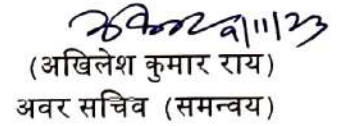 9/11/23
(अखिलेश कुमार राय)
अवर सचिव (समन्वय)